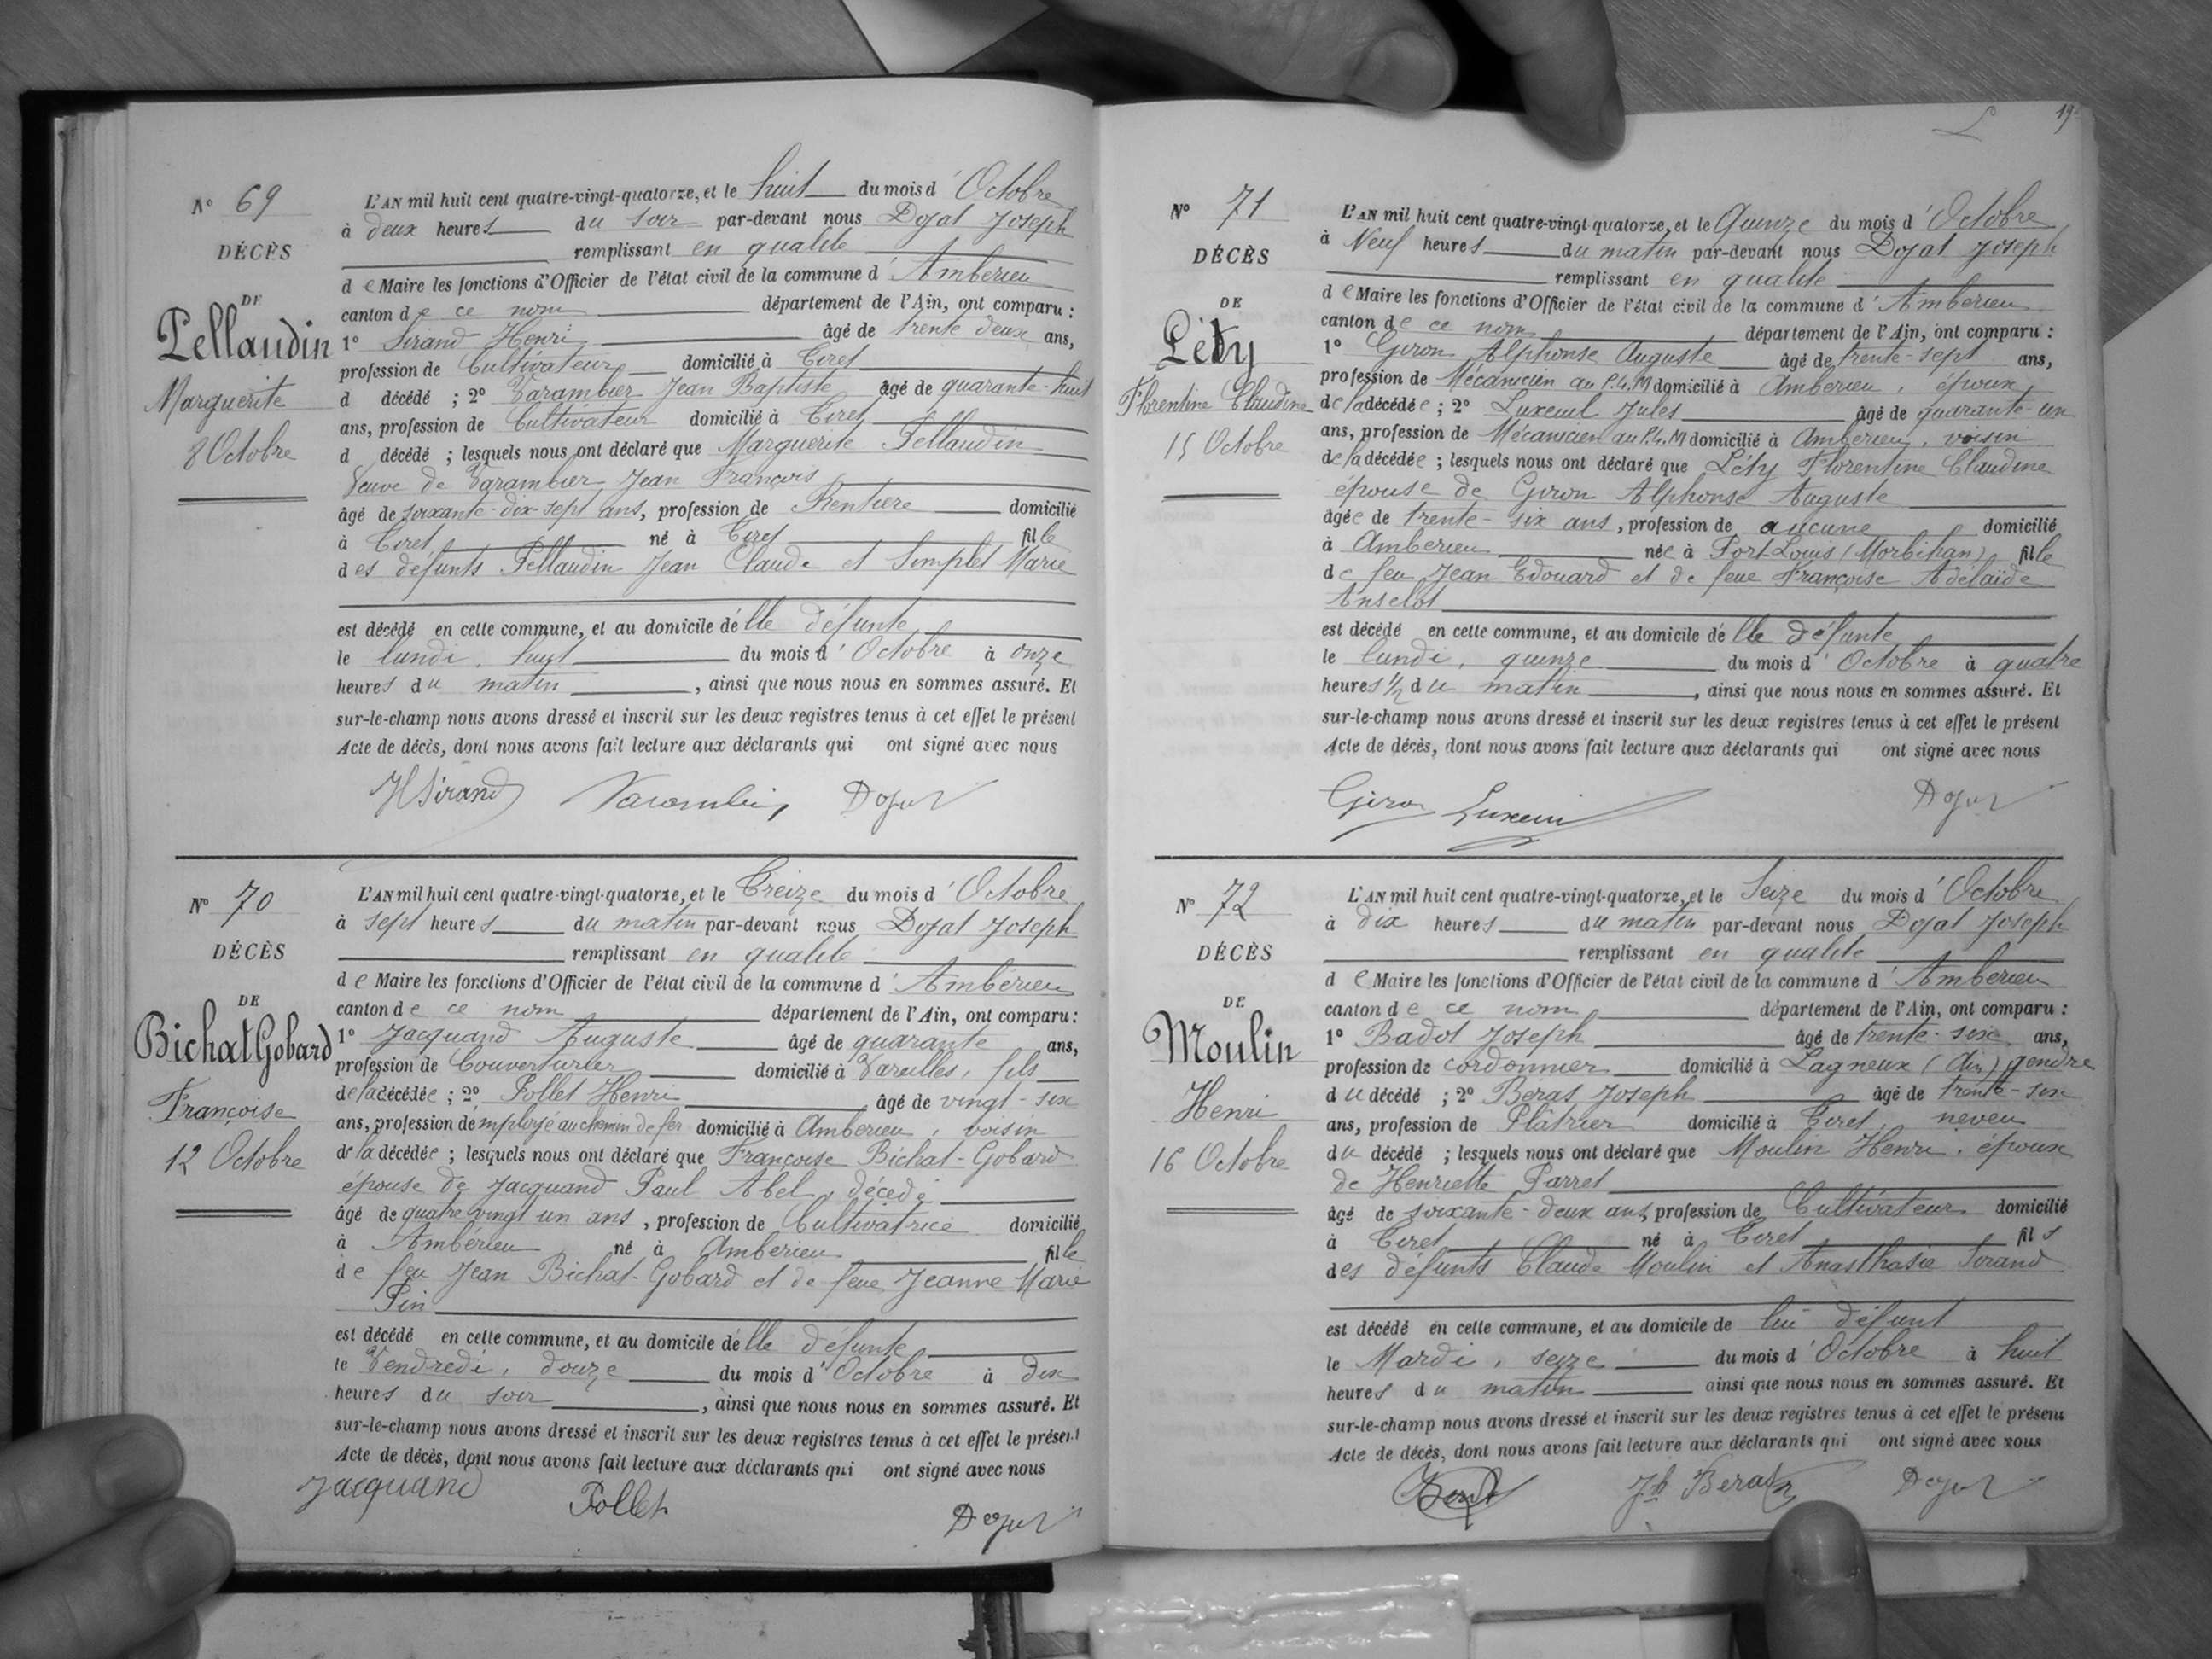 Nº 69
DÉCÈS
DE
Pellaudin
Marguerite
8 Octobre
L'AN mil huit cent quatre-vingt-quatorze, et le huit du mois d'Octobre
à deux heures du soir par-devant nous Dojat Joseph
remplissant en qualité
de Maire les fonctions d'Officier de l'état civil de la commune d'Ambérieu
canton de ce nom département de l'Ain, ont comparu :
1° Sirand Henri âgé de trente deux ans,
profession de Cultivateur domicilié à Tiret
d décédé ; 2° Varambier Jean Baptiste âgé de quarante-huit
ans, profession de Cultivateur domicilié à Tiret
d décédé ; lesquels nous ont déclaré que Marguerite Pellaudin
Veuve de Varambier Jean François
âgé de soixante-dix-sept ans, profession de Rentière domicilié
à Tiret né à Tiret fille
des défunts Pellaudin Jean Claude et Simplet Marie
est décédé en cette commune, et au domicile de lle défunte
le lundi, huit du mois d'Octobre à onze
heures du matin, ainsi que nous nous en sommes assuré. Et
sur-le-champ nous avons dressé et inscrit sur les deux registres tenus à cet effet le présent
Acte de décès, dont nous avons fait lecture aux déclarants qui ont signé avec nous
H Sirand Varambier Dojat
Nº 70
DÉCÈS
DE
Bichat Gobard
Françoise
12 Octobre
L'AN mil huit cent quatre-vingt-quatorze, et le Treize du mois d'Octobre
à sept heures du matin par-devant nous Dojat Joseph
remplissant en qualité
de Maire les fonctions d'Officier de l'état civil de la commune d'Ambérieu
canton de ce nom département de l'Ain, ont comparu :
1° Jacquand Auguste âgé de quarante ans,
profession de Couverturier domicilié à Vareilles, fils
de la décédée ; 2° Pollet Henri âgé de vingt-six
ans, profession de employé au chemin de fer domicilié à Ambérieu, voisin
de la décédée ; lesquels nous ont déclaré que Françoise Bichat-Gobard
épouse de Jacquand Paul Abel, décédé
âgé de quatre vingt un ans, profession de Cultivatrice domicilié
à Ambérieu né à Ambérieu fille
de feu Jean Bichat-Gobard et de feue Jeanne Marie
Pin
est décédé en cette commune, et au domicile de lle défunte
le Vendredi, douze du mois d'Octobre à dix
heures du soir, ainsi que nous nous en sommes assuré. Et
sur-le-champ nous avons dressé et inscrit sur les deux registres tenus à cet effet le présent
Acte de décès, dont nous avons fait lecture aux déclarants qui ont signé avec nous
Jacquand Pollet Dojat
19
Nº 71
DÉCÈS
DE
Léty
Florentine Claudine
15 Octobre
L'AN mil huit cent quatre-vingt-quatorze, et le Quinze du mois d'Octobre
à Neuf heures du matin par-devant nous Dojat Joseph
remplissant en qualité
de Maire les fonctions d'Officier de l'état civil de la commune d'Ambérieu
canton de ce nom département de l'Ain, ont comparu :
1° Giron Alphonse Auguste âgé de trente-sept ans,
profession de Mécanicien au P.L.M domicilié à Ambérieu, époux
de la décédée ; 2° Luxeuil Jules âgé de quarante un
ans, profession de Mécanicien au P.L.M domicilié à Ambérieu, voisin
de la décédée ; lesquels nous ont déclaré que Léty Florentine Claudine
épouse de Giron Alphonse Auguste
âgée de trente-six ans, profession de aucune domicilié
à Ambérieu née à Port-Louis (Morbihan) fille
de feu Jean Edouard et de feue Françoise Adélaïde
Anselot
est décédé en cette commune, et au domicile de lle défunte
le lundi, quinze du mois d'Octobre à quatre
heures 1/2 du matin, ainsi que nous nous en sommes assuré. Et
sur-le-champ nous avons dressé et inscrit sur les deux registres tenus à cet effet le présent
Acte de décès, dont nous avons fait lecture aux déclarants qui ont signé avec nous
Giron Luxeuil Dojat
Nº 72
DÉCÈS
DE
Moulin
Henri
16 Octobre
L'AN mil huit cent quatre-vingt-quatorze, et le Seize du mois d'Octobre
à dix heures du matin par-devant nous Dojat Joseph
remplissant en qualité
de Maire les fonctions d'Officier de l'état civil de la commune d'Ambérieu
canton de ce nom département de l'Ain, ont comparu :
1° Badot Joseph âgé de trente-six ans,
profession de cordonnier domicilié à Lagneux (Ain) gendre
du décédé ; 2° Béras Joseph âgé de trente-six
ans, profession de Plâtrier domicilié à Tiret, neveu
du décédé ; lesquels nous ont déclaré que Moulin Henri, époux
de Henriette Parret
âgé de soixante-deux ans, profession de Cultivateur domicilié
à Tiret né à Tiret fils
des défunts Claude Moulin et Anasthasie Sirand
est décédé en cette commune, et au domicile de lui défunt
le Mardi, seize du mois d'Octobre à huit
heures du matin ainsi que nous nous en sommes assuré. Et
sur-le-champ nous avons dressé et inscrit sur les deux registres tenus à cet effet le présent
Acte de décès, dont nous avons fait lecture aux déclarants qui ont signé avec nous
Jh Beras Dojat